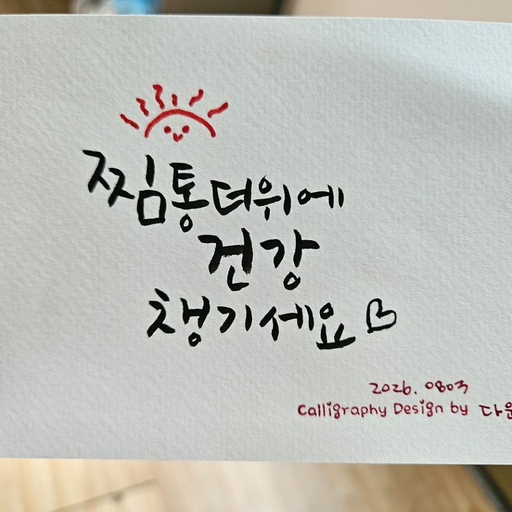 찜통더위에
건강
챙기세요
2026. 0803
Calligraphy Design by